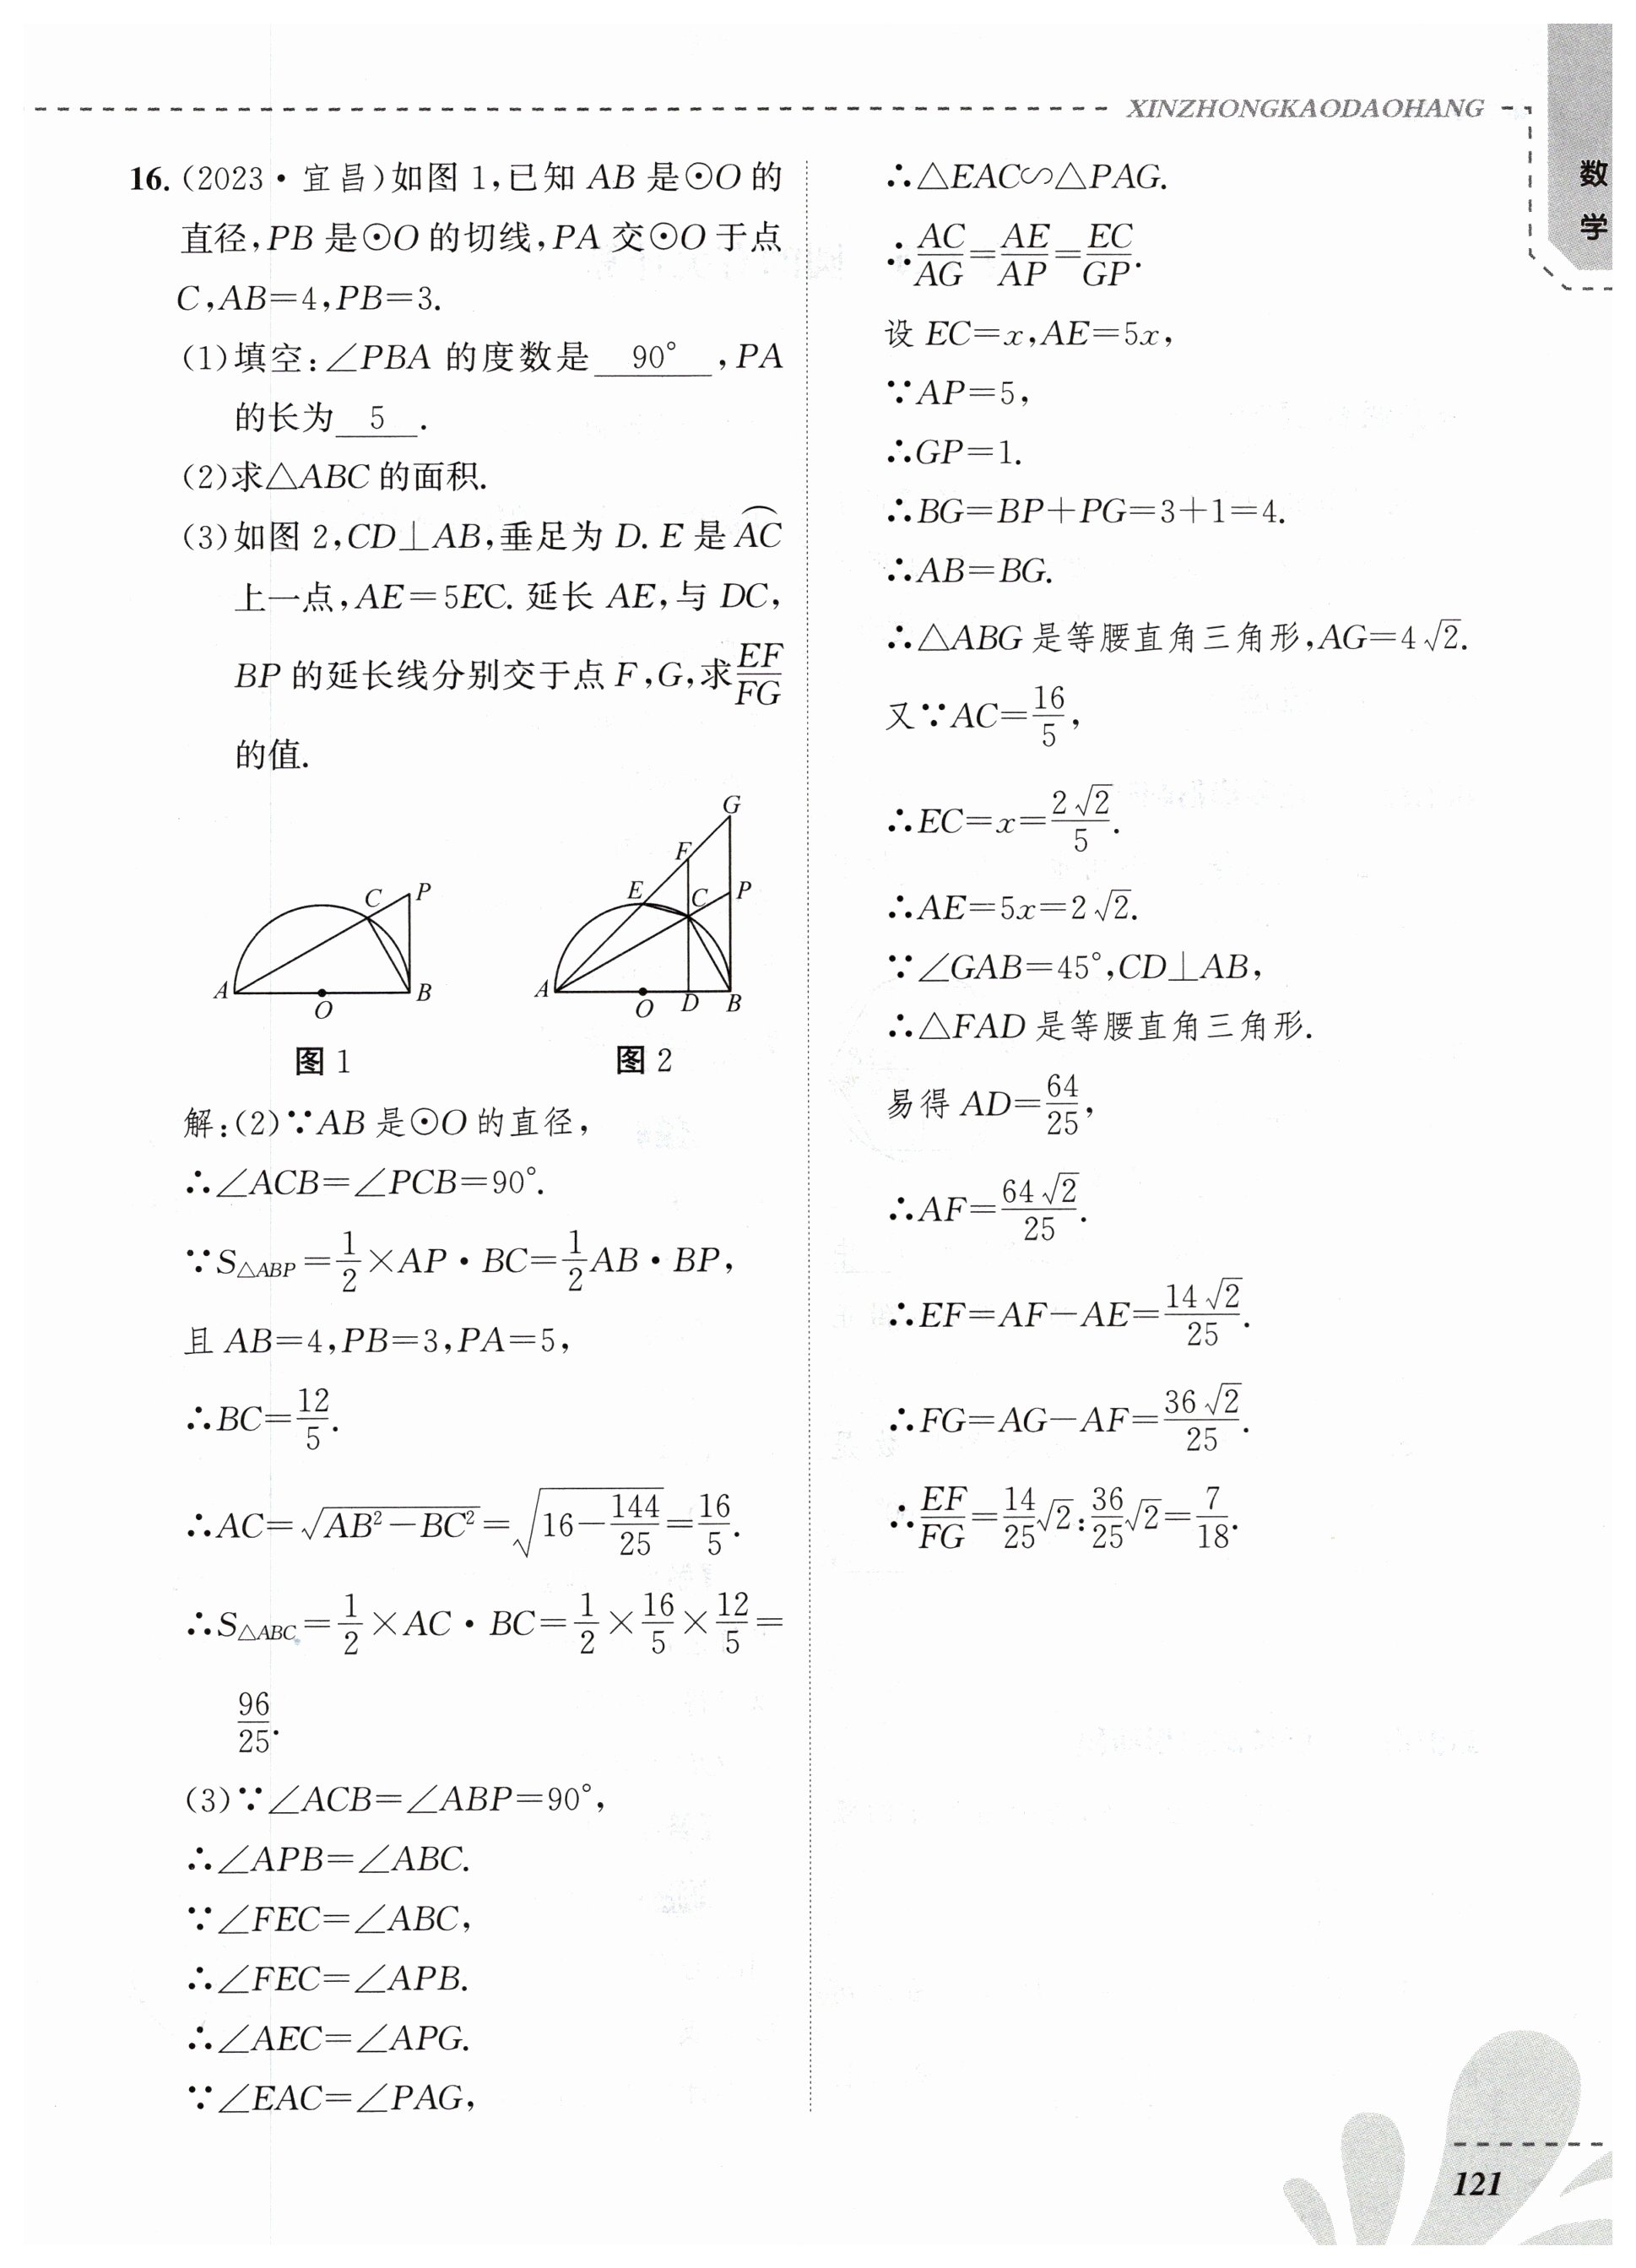 XINZHONGKAODAOHANG
数
学
16.(2023·宜昌)如图1,已知AB是⊙O的
直径,PB是⊙O的切线,PA交⊙O于点
C,AB=4,PB=3.
(1)填空:∠PBA的度数是 90° ,PA
的长为 5 .
(2)求△ABC的面积.
(3)如图2,CD⊥AB,垂足为D.E是⌒AC
上一点,AE=5EC.延长AE,与DC,
BP的延长线分别交于点F,G,求EF/FG
的值.
A O B C P
图1
A O D B C P E F G
图2
解:(2)∵AB是⊙O的直径,
∴∠ACB=∠PCB=90°.
∵S△ABP=1/2×AP·BC=1/2AB·BP,
且AB=4,PB=3,PA=5,
∴BC=12/5.
∴AC=√(AB²-BC²)=√(16-144/25)=16/5.
∴S△ABC=1/2×AC·BC=1/2×16/5×12/5=
96/25.
(3)∵∠ACB=∠ABP=90°,
∴∠APB=∠ABC.
∵∠FEC=∠ABC,
∴∠FEC=∠APB.
∴∠AEC=∠APG.
∵∠EAC=∠PAG,
∴△EAC∽△PAG.
∴AC/AG=AE/AP=EC/GP.
设EC=x,AE=5x,
∵AP=5,
∴GP=1.
∴BG=BP+PG=3+1=4.
∴AB=BG.
∴△ABG是等腰直角三角形,AG=4√2.
又∵AC=16/5,
∴EC=x=2√2/5.
∴AE=5x=2√2.
∵∠GAB=45°,CD⊥AB,
∴△FAD是等腰直角三角形.
易得AD=64/25,
∴AF=64√2/25.
∴EF=AF-AE=14√2/25.
∴FG=AG-AF=36√2/25.
∴EF/FG=14/25√2:36/25√2=7/18.
121